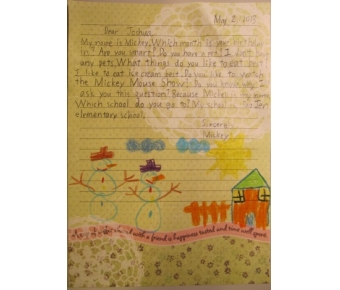 May 2, 2019
Dear Joshua,
My name is Mickey. Which month is your birthday
in? Are you smart? Do you have a pet? I don't have
any pets. What things do you like to eat best?
I like to eat ice cream best. Do you like to watch
the Mickey Mouse Show? Do you know why I
ask you this question? Because Mickey is my name.
Which school do you go to? My school is
elementary school.
Mickey
with a friend is happiness tasted and time well spent.